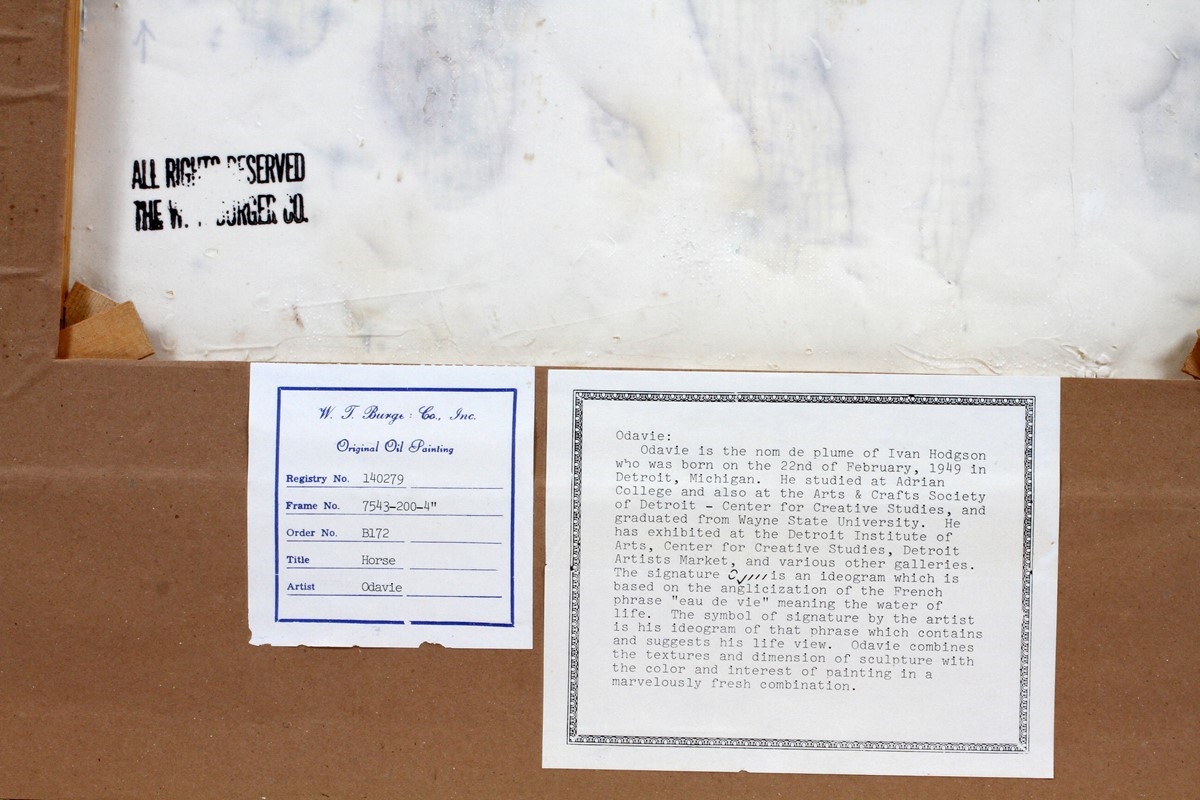 ALL RIGHTS RESERVED
THE W. T. BURGER CO.
W. T. Burge : Co., Inc.
Original Oil Painting
Registry No. 140279
Frame No. 7543-200-4"
Order No. B172
Title Horse
Artist Odavie
Odavie:
Odavie is the nom de plume of Ivan Hodgson
who was born on the 22nd of February, 1949 in
Detroit, Michigan. He studied at Adrian
College and also at the Arts & Crafts Society
of Detroit - Center for Creative Studies, and
graduated from Wayne State University. He
has exhibited at the Detroit Institute of
Arts, Center for Creative Studies, Detroit
Artists Market, and various other galleries.
The signature is an ideogram which is
based on the anglicization of the French
phrase "eau de vie" meaning the water of
life. The symbol of signature by the artist
is his ideogram of that phrase which contains
and suggests his life view. Odavie combines
the textures and dimension of sculpture with
the color and interest of painting in a
marvelously fresh combination.